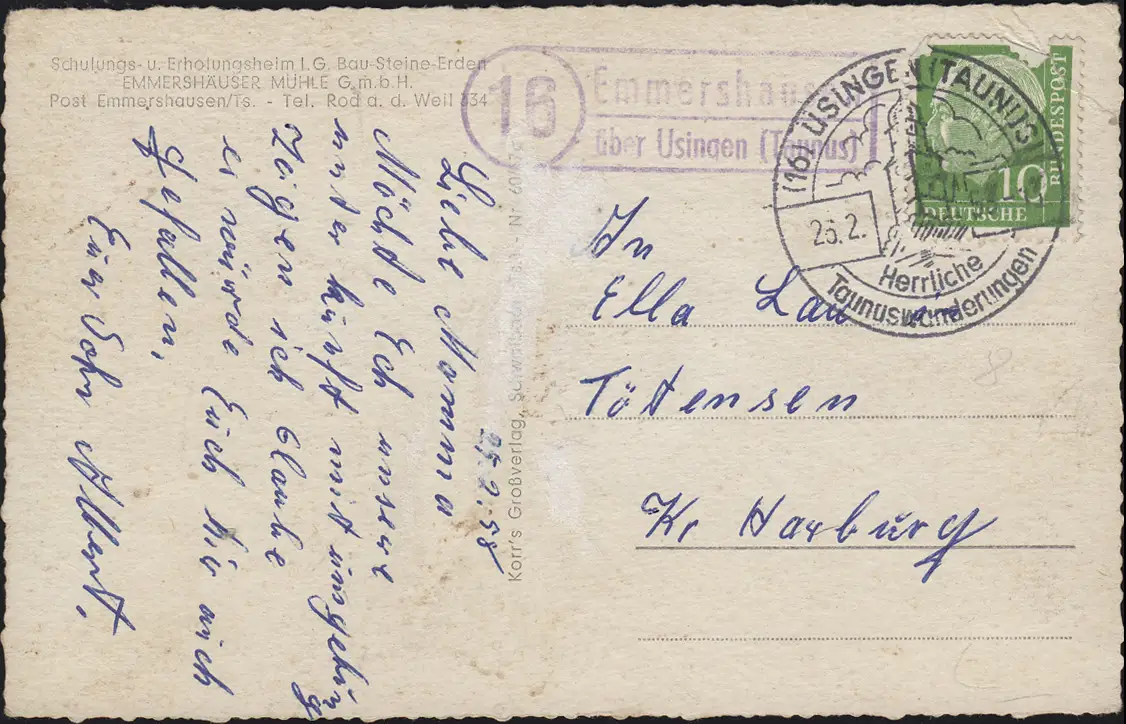 Schulungs- u. Erholungsheim I.G. Bau-Steine-Erden
EMMERSHÄUSER MÜHLE G.m.b.H.
Post Emmershausen/Ts. - Tel. Rod a. d. Weil 334
16
Emmershausen
über Usingen (Taunus)
(16) USINGEN (TAUNUS)
26.2.
Herrliche
Taunuswanderungen
10
DEUTSCHE
BUNDESPOST
25.2.58
Liebe Mamma
Möchte Euch unsere
unterkünft mit umgebüng
Zeigen ich Glaube
es würde Euch hir auch
Gefallen,
Euer Sohn Albert.
Korr's Großverlag,
An
Ella
Tötensen
Kr Harburg